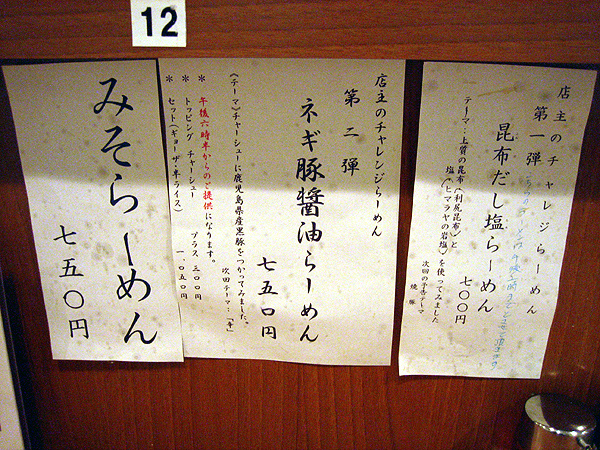 12
店主のチャレジらーめん
第一弾
昆布だし塩らーめん
七〇〇円
テーマ:上質の昆布(利尻昆布)と
塩(ヒマラヤの岩塩)を使ってみました
次回の予告テーマ
焼豚
店主のチャレンジらーめん
第二弾
ネギ豚醤油らーめん
七五〇円
《テーマ》チャーシューに鹿児島県産黒豚をつかってみました。
次回テーマ:「辛」
*午後六時半からのご提供になります。
*トッピング チャーシュー プラス 三〇〇円
*セット(ギョーザ・半ライス) 一、〇五〇円
みそらーめん
七五〇円